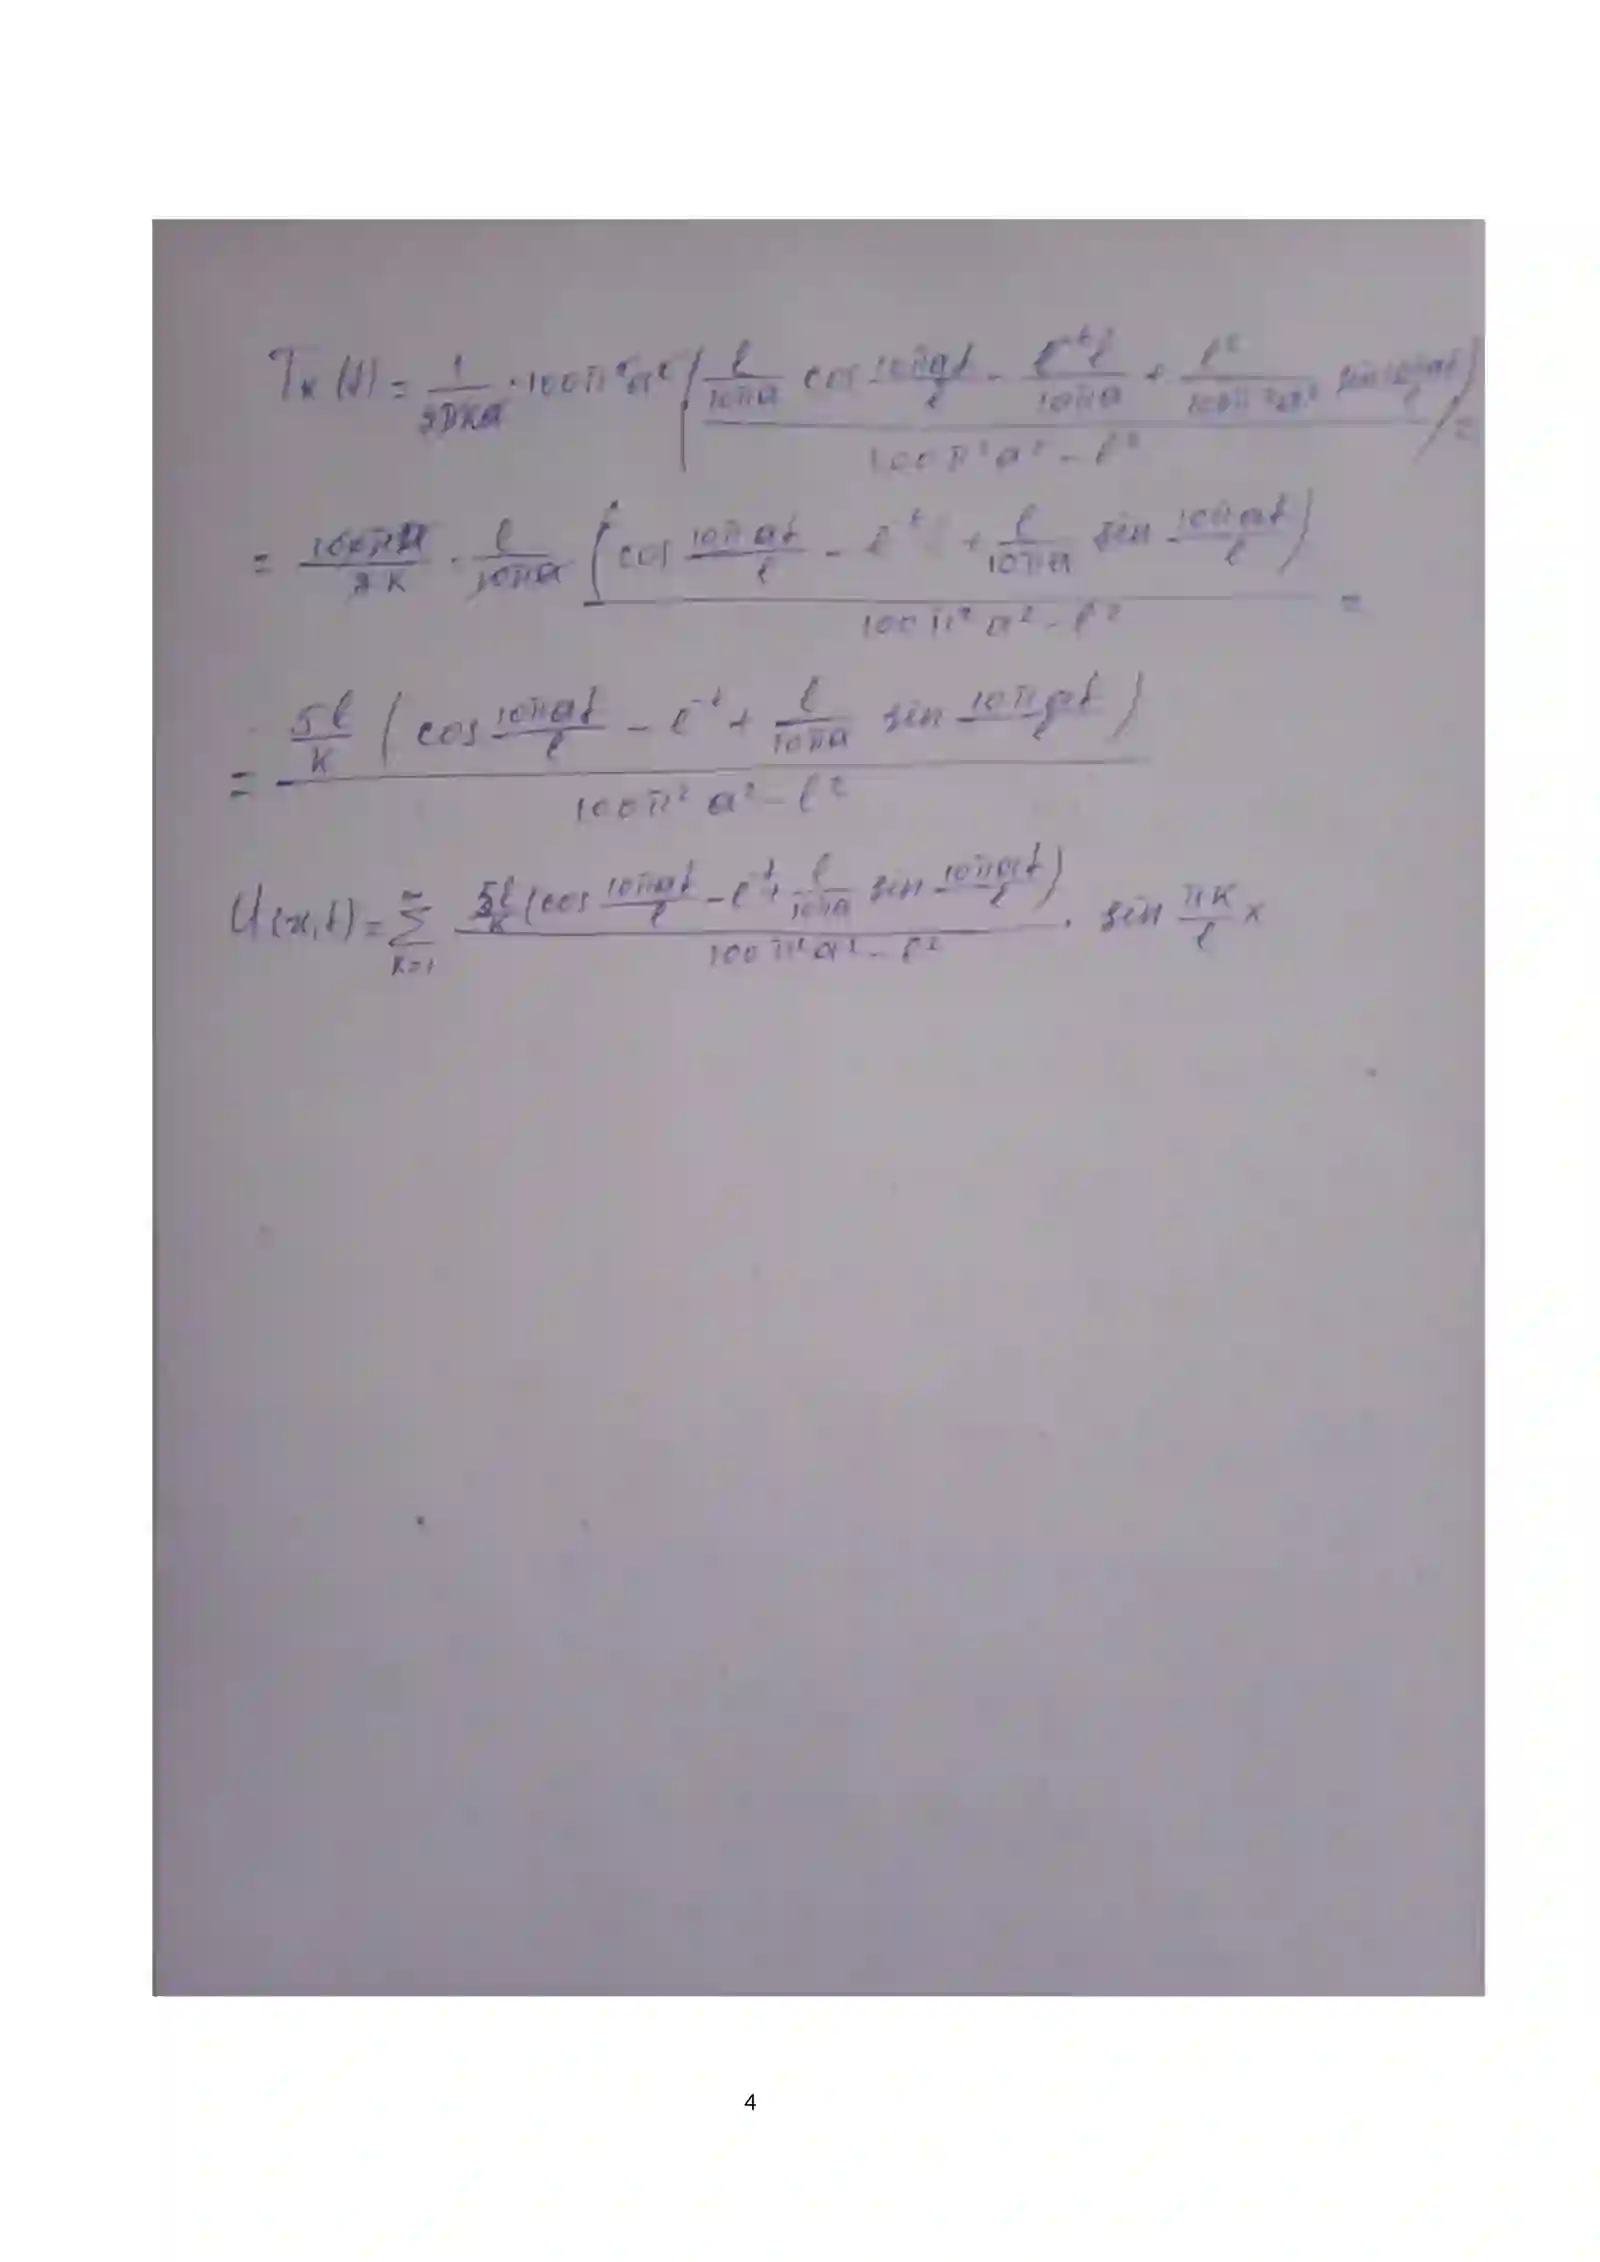 Tк(t) = 1/2πка · 100π²a² ( (l/10πa cos 10πat/l - (e^-t l)/10πa + l²/100π²a² sin 10πat/l) / (100π²a² - l²) ) =
= 100πa/2к · l/10πa (cos 10πat/l - e^-t + l/10πa sin 10πat/l) / (100π²a² - l²) =
= 5l/к (cos 10πat/l - e^-t + l/10πa sin 10πat/l) / (100π²a² - l²)
U(x,t) = ∑ к=1 ∞ 5l/к (cos 10πat/l - e^-t + l/10πa sin 10πat/l) / (100π²a² - l²) · sin πк/l x
4